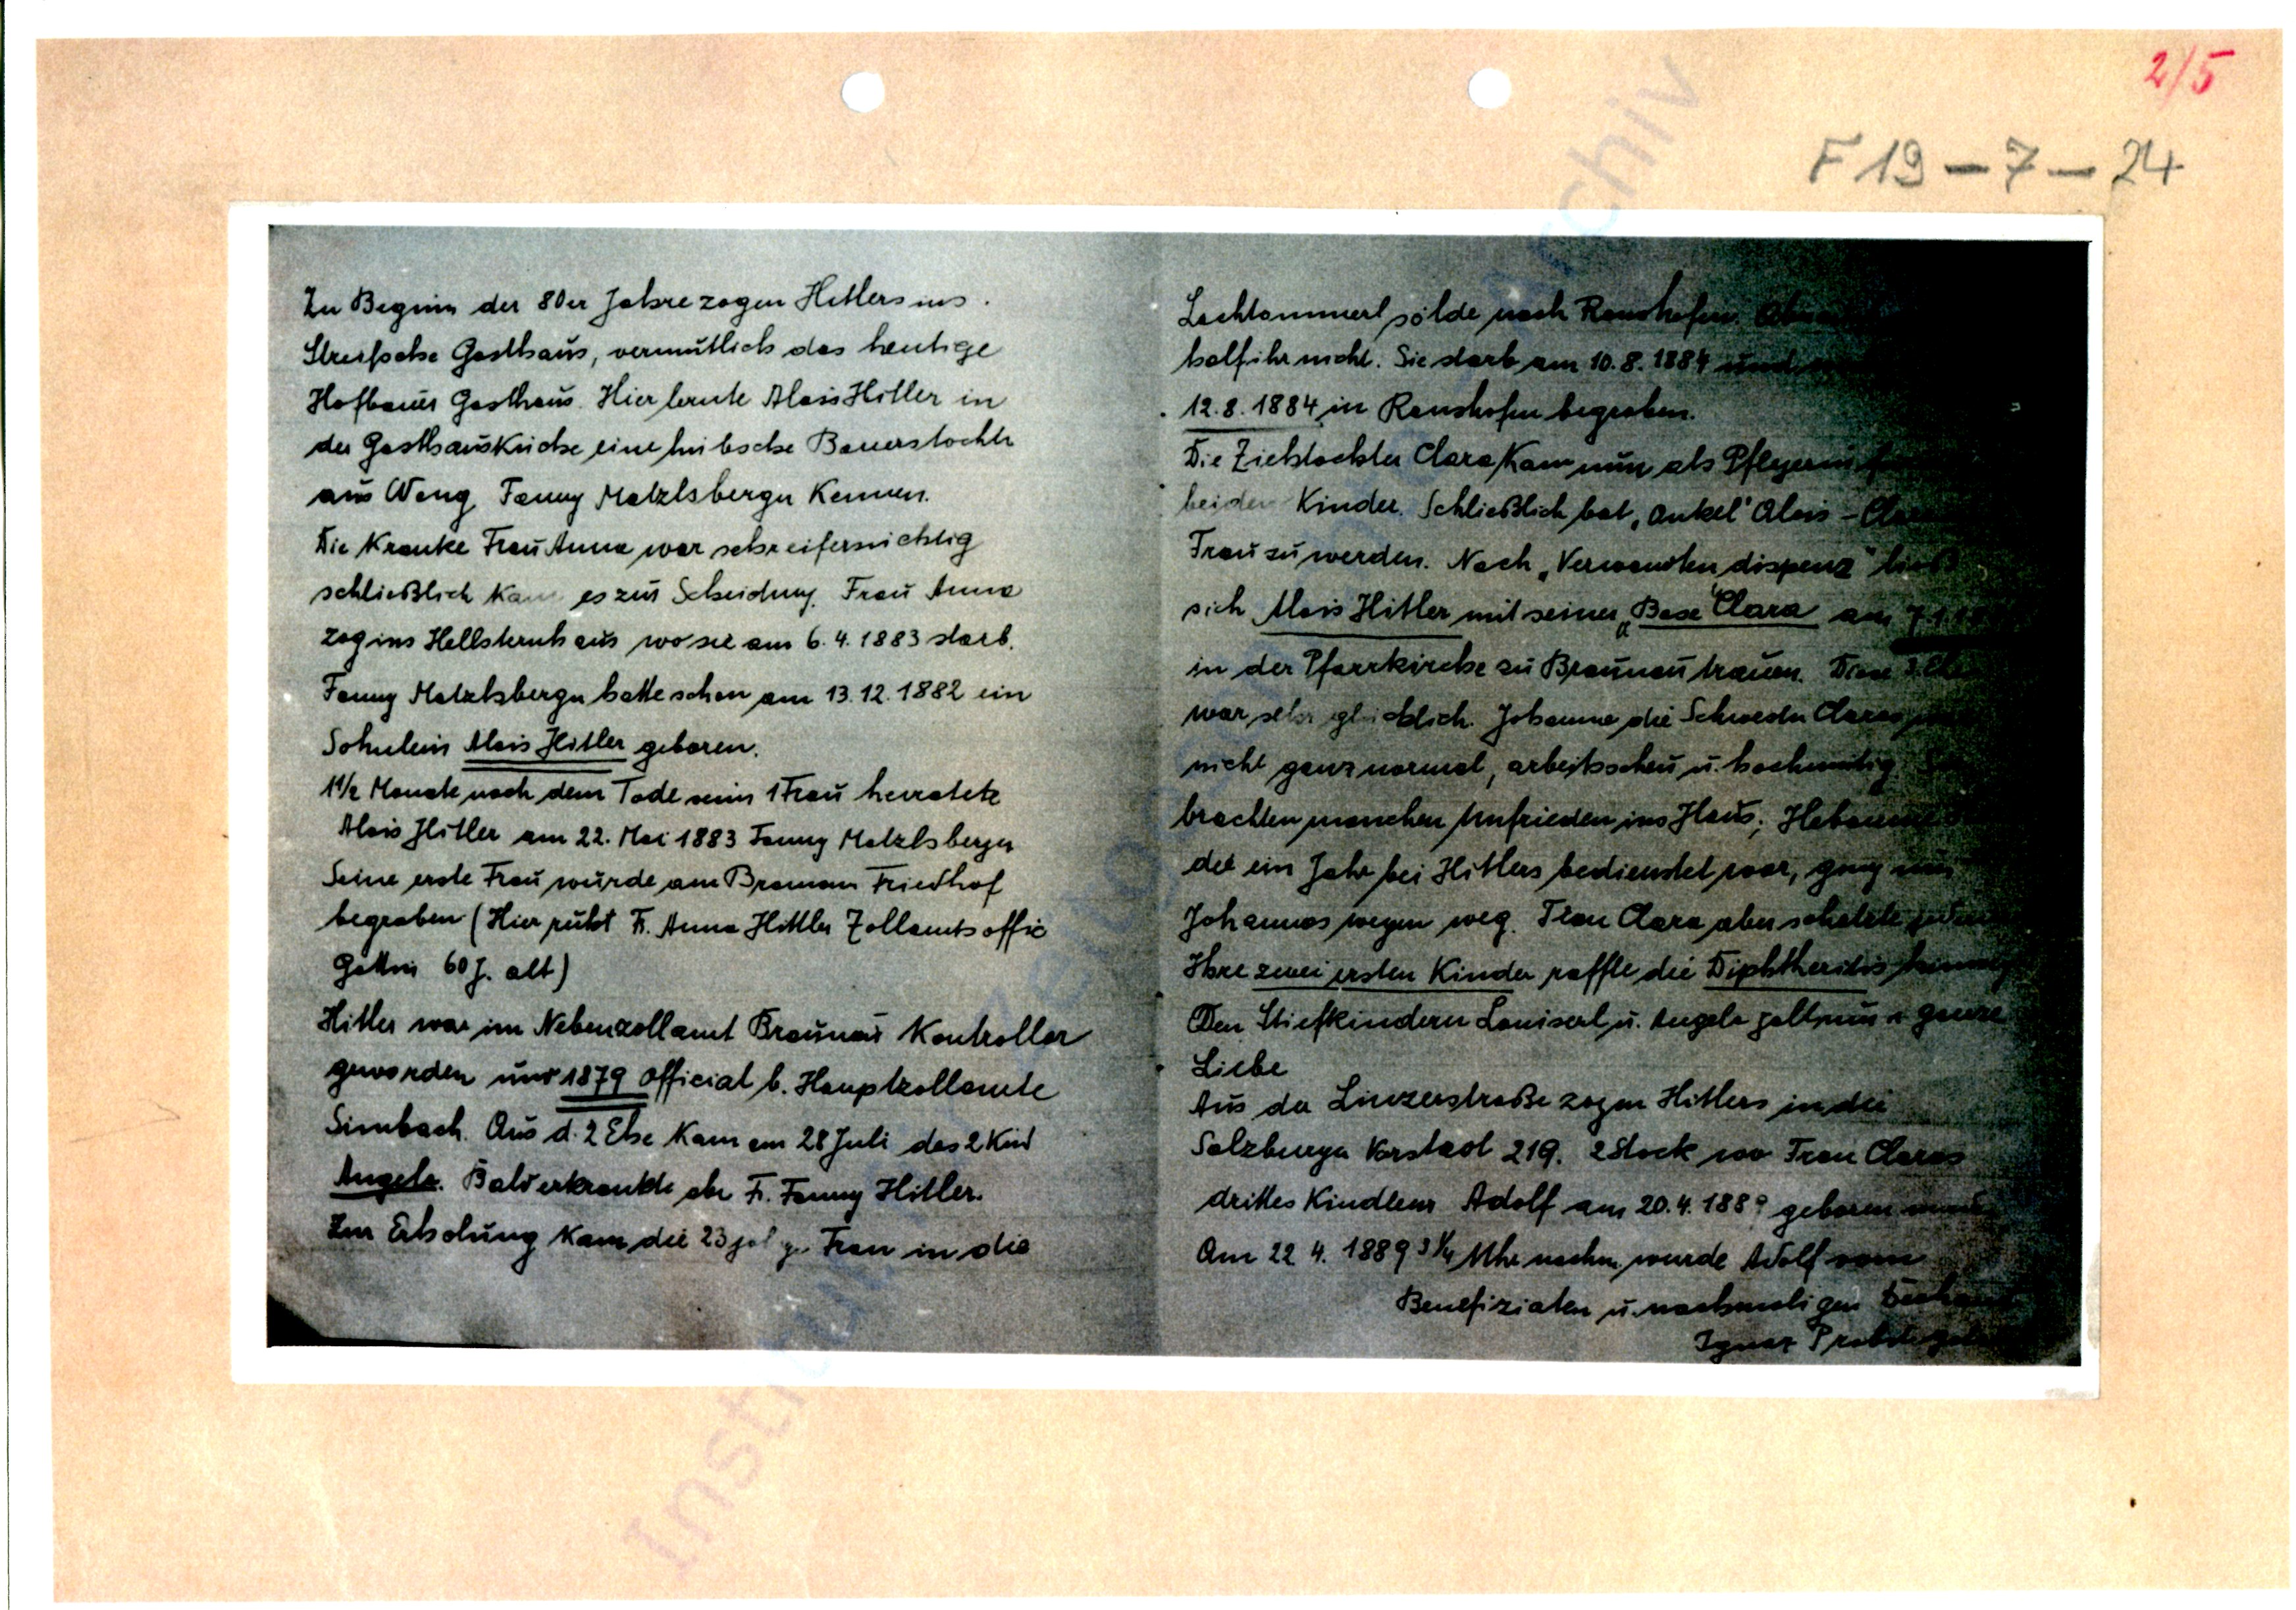 2/5
F 19 – 7 – 24
Zu Beginn der 80er Jahre zogen Hitlers ins
Streifsche Gasthaus, vermutlich das heutige
Hofbauer Gasthaus. Hier lernte Alois Hitler in
der Gasthausküche eine hübsche Bauerstochter
aus Weng Fanny Matzlsberger kennen.
Die Kranke Frau Anna war sehr eifersüchtig
schließlich kam es zur Scheidung. Frau Anna
zog ins Hellsternhaus wo sie am 6.4.1883 starb.
Fanny Matzlsberger hatte schon am 13.12.1882 ein
Söhnlein Alois Hitler geboren.
1 1/2 Monate nach dem Tode seiner 1 Frau heiratete
Alois Hitler am 22. Mai 1883 Fanny Matzlsberger
Seine erste Frau wurde am Braunau Friedhof
begraben (Hier ruht Fr. Anna Hittler Zollamtsoffic
Gattin 60 J. alt)
Hitler war im Nebenzollamt Braunau Kontrollor
geworden und 1879 Official b. Hauptzollamte
Simbach. Aus d. 2 Ehe kam am 28 Juli das 2 Kind
Angela. Bald erkrankte aber Fr. Fanny Hitler.
Zur Erholung kam die 23 jähige Frau in die
Lachtammerlsölde nach Ranshofen.
half ihr nicht. Sie starb am 10.8.1884 und
12.8.1884 in Ranshofen begraben.
Die Ziehtochter Clara kam nun als Pflegerin
beiden Kinder. Schließlich bat „Onkel" Alois –
Frau zu werden. Nach „Verwandtendispenz" ließ
sich Alois Hitler mit seiner „Base" Clara am 7.1
in der Pfarrkirche zu Braunau trauen. Diese 3. Ehe
war sehr glücklich. Johanna die Schwester Claras
nicht ganz normal, arbeitsscheu u. hochmütig
brachten manchen Unfrieden ins Haus; Hebamme
die ein Jahr bei Hitlers bedienstet war, ging nur
Johannas wegen weg. Frau Clara aber schätzte
Ihre zwei ersten Kinder raffte die Diphtheritis hinweg
Den Stiefkindern Louiserl u. Angela galt nun ganze
Liebe
Aus der Linzerstraße zogen Hitlers in die
Salzburger Vorstadt 219. 2 Stock wo Frau Claras
drittes Kindlein Adolf am 20.4.1889 geboren wurde
Am 22 4. 1889 3 1/4 Uhr nachm. wurde Adolf vom
Benefiziaten u. nachmaligen
Ignaz Probst
Institut für Zeitgeschichte Archiv